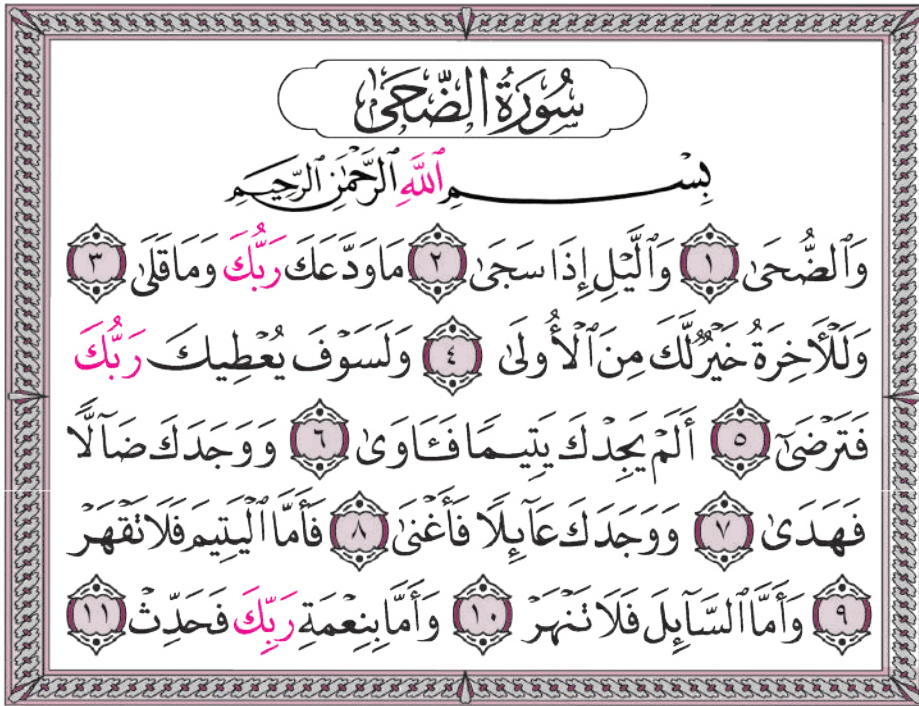 سُورَةُ الضُّحَىٰ
بِسْمِ ٱللَّهِ ٱلرَّحْمَٰنِ ٱلرَّحِيمِ
وَٱلضُّحَىٰ ١ وَٱلَّيْلِ إِذَا سَجَىٰ ٢ مَا وَدَّعَكَ رَبُّكَ وَمَا قَلَىٰ ٣
وَلَلْأَخِرَةُ خَيْرٌ لَّكَ مِنَ ٱلْأُولَىٰ ٤ وَلَسَوْفَ يُعْطِيكَ رَبُّكَ
فَتَرْضَىٰٓ ٥ أَلَمْ يَجِدْكَ يَتِيمًا فَـَٔاوَىٰ ٦ وَوَجَدَكَ ضَآلًّا
فَهَدَىٰ ٧ وَوَجَدَكَ عَآئِلًا فَأَغْنَىٰ ٨ فَأَمَّا ٱلْيَتِيمَ فَلَا تَقْهَرْ
٩ وَأَمَّا ٱلسَّآئِلَ فَلَا تَنْهَرْ ١٠ وَأَمَّا بِنِعْمَةِ رَبِّكَ فَحَدِّثْ ١١